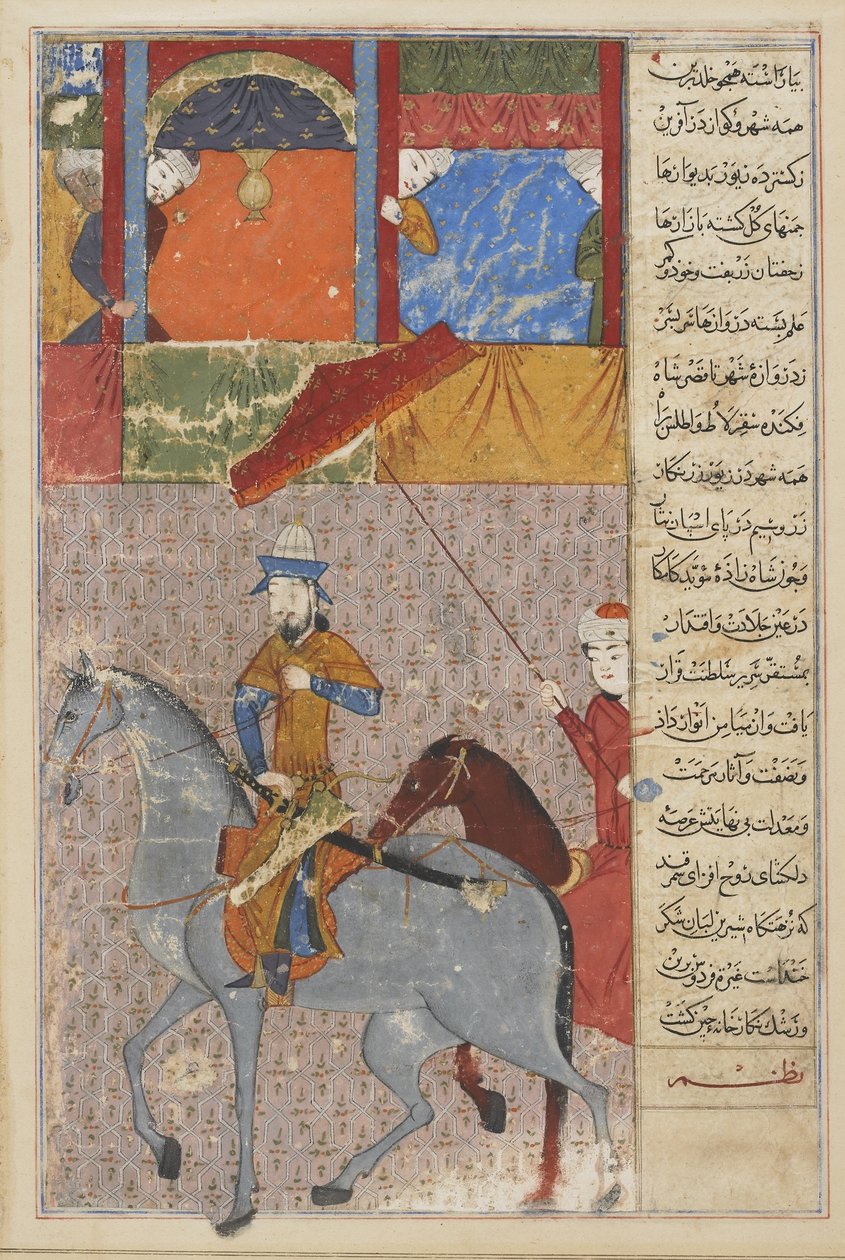 بیاراسته همچو خلد برین
همه شهر و کو از در آفرین
ز کسترده زیور بدیوارها
چمنهای کل کشته بازارها
ز خفتان زربفت و خود و کمر
علم بسته دروازها سربسر
ز دروازهٔ شهر تا قصر شاه
فکنده سقرلاط و اطلس براه
همه شهر در زیور زرنکار
زر و سیم در پای اسپان نثار
و چون شاه زاذهٔ مؤید کامکار
در عین جلادت و اقتدار
بمستقر سریر سلطنت قرار
یافت و از میامن انوار داذ
و نصفت و آثار مرحمت
و معدلت بی نهایتش عرصهٔ
دلکشای روح افزای سمرقند
که نزهتکاه شیرین لبان شکر
خنداست غیرة فردوس برین
و رشک نکارخانهٔ چین کشت
نظم